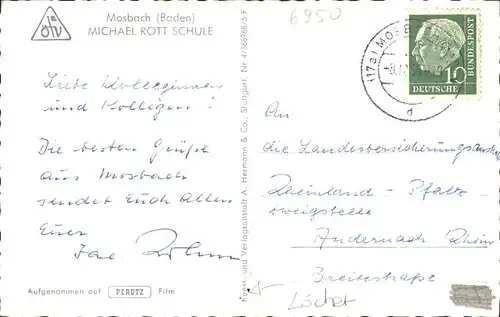 ÖTV
Mosbach (Baden)
MICHAEL ROTT SCHULE
6950
(17a) MOSB
10
DEUTSCHE
BUNDESPOST
d
Liebe Kolleginnen
und Kollegen!
Die besten Grüße
aus Mosbach
sendet Euch allen
Euer
Jac.
Kunst- und Verlagsanstalt A. Hermann & Co., Stuttgart. Nr. 4/166766/5 F
An
die Landesversicherungsanstalt
Rheinland-Pfalz
Zweigstelle
Andernach/Rhein
Breitestraße
Aufgenommen auf PERUTZ Film